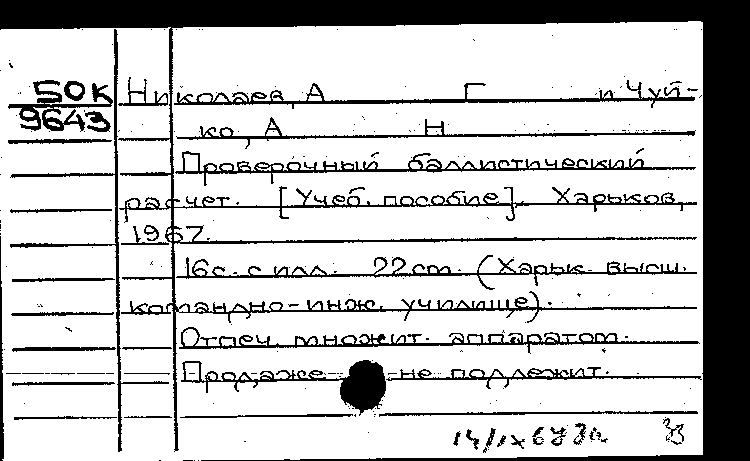 50К Николаев, А Г и Чуй-
9643 ко, А Н
Проверочный баллистический
расчет. [Учеб. пособие]. Харьков,
1967.
16с. с илл. 22 cm. (Харьк. высш.
командно-инж. училище).
Отпеч. множит. аппаратом.
Продаже не подлежит.
14/IX 67